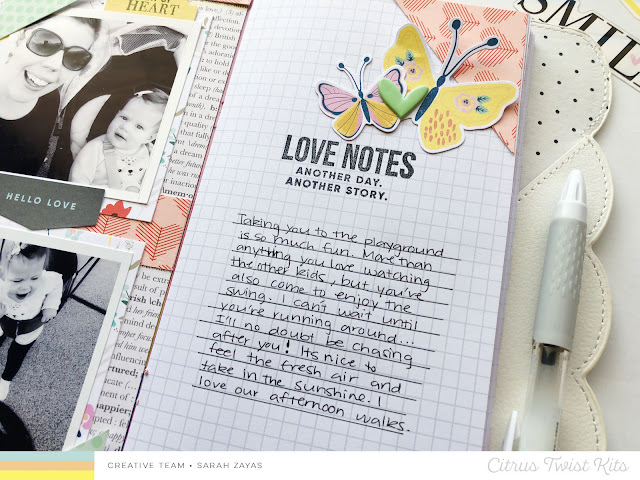 HEART
HELLO LOVE
LOVE NOTES
ANOTHER DAY.
ANOTHER STORY.
Taking you to the playground
is so much fun. More than
anything you love watching
the other kids, but you've
also come to enjoy the
swing. I can't wait until
you're running around...
I'll no doubt be chasing
after you! Its nice to
feel the fresh air and
take in the sunshine. I
love our afternoon walks.
SMILE
CREATIVE TEAM • SARAH ZAYAS
Citrus Twist Kits